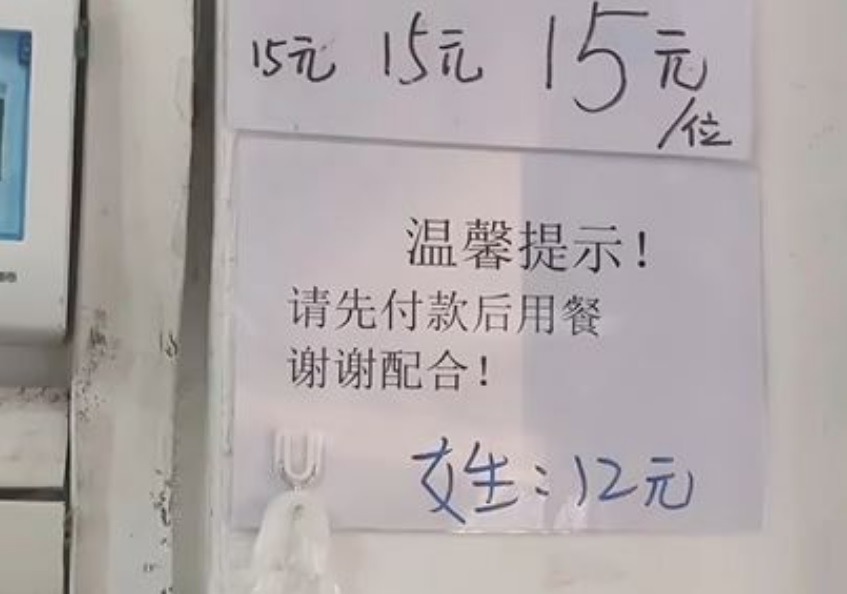 15元 15元 15元
/位
温馨提示!
请先付款后用餐
谢谢配合!
女生:12元